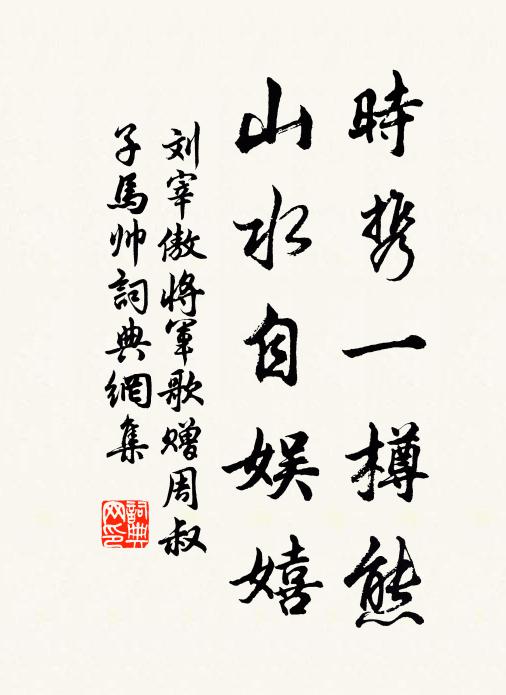 時携一樽熊
山水自娱嬉
刘宰傲将軍歌赠周叔
子馬帅詞典網集
詞典
网印